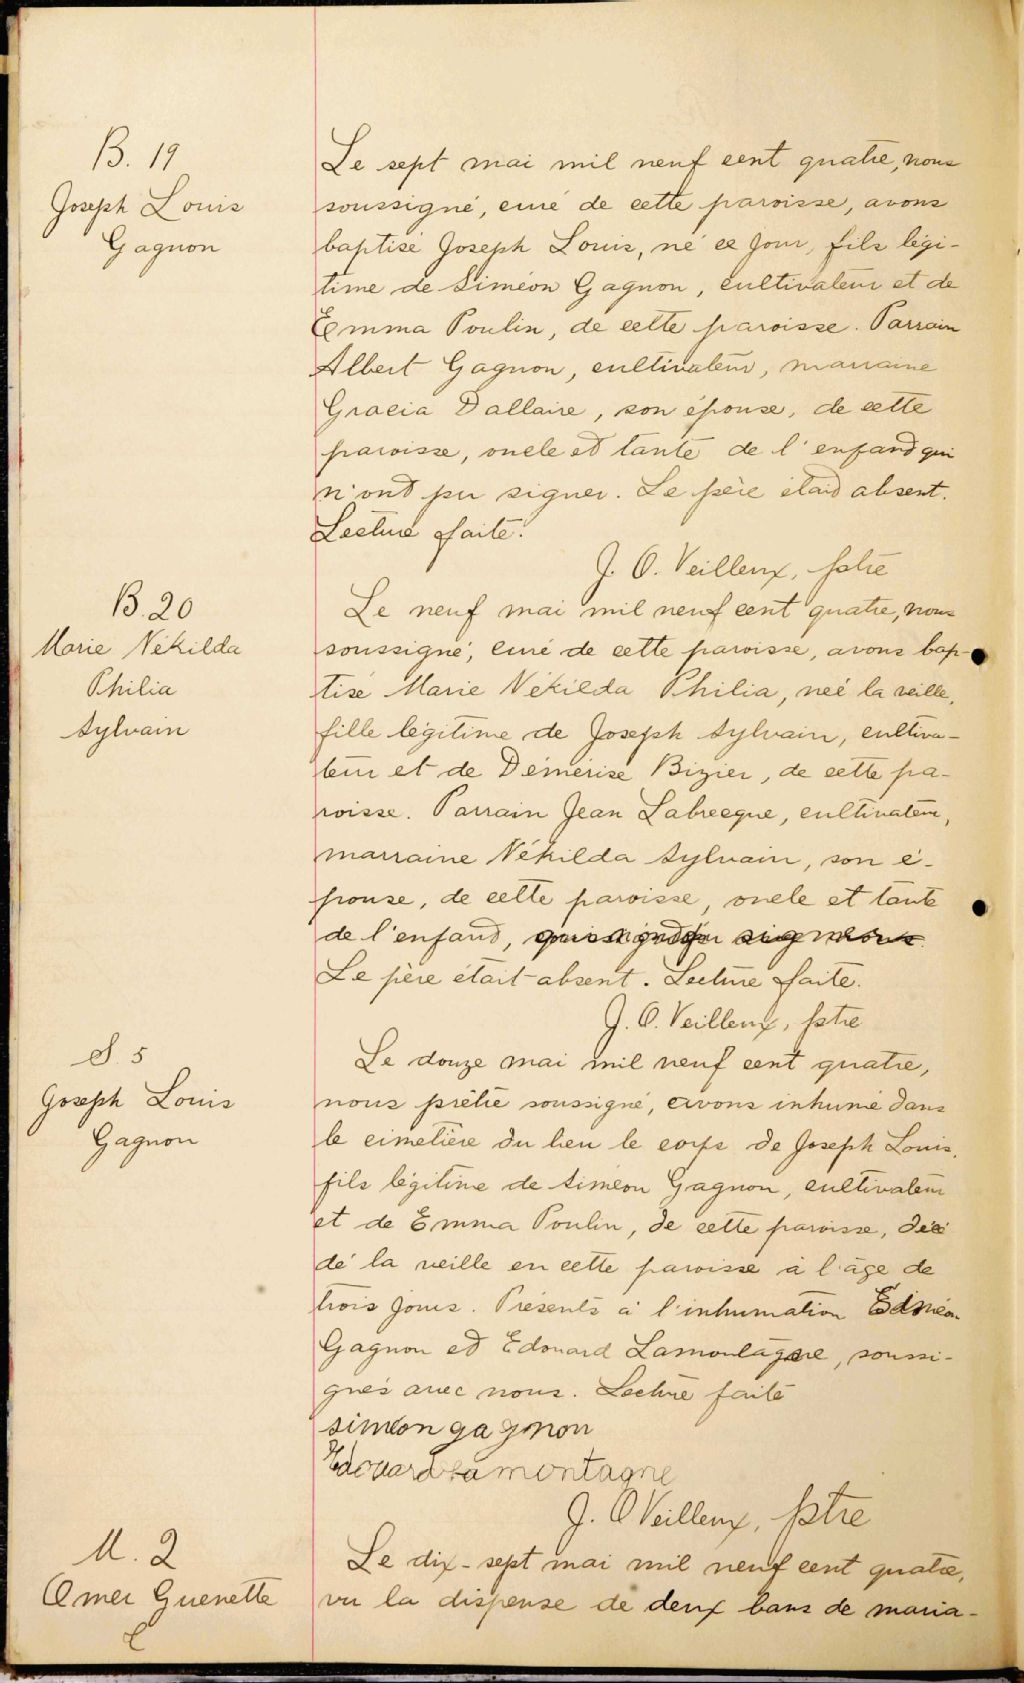 B. 19
Joseph Louis
Gagnon
Le sept mai mil neuf cent quatre, nous
soussigné, curé de cette paroisse, avons
baptisé Joseph Louis, né ce jour, fils légi-
time de Siméon Gagnon, cultivateur et de
Emma Poulin, de cette paroisse. Parrain
Albert Gagnon, cultivateur, marraine
Gracia Dallaire, son épouse, de cette
paroisse, oncle et tante de l'enfant qui
n'ont pu signer. Le père était absent.
Lecture faite.
J. O. Veilleux, ptre
B. 20
Marie Nékilda
Philia
Sylvain
Le neuf mai mil neuf cent quatre, nous
soussigné, curé de cette paroisse, avons bap-
tisé Marie Nékilda Philia, née la veille,
fille légitime de Joseph Sylvain, cultiva-
teur et de Démérise Bizier, de cette pa-
roisse. Parrain Jean Labrecque, cultivateur,
marraine Nékilda Sylvain, son é-
pouse, de cette paroisse, oncle et tante
de l'enfant,
Le père était absent. Lecture faite.
J. O. Veilleux, ptre
S. 5
Joseph Louis
Gagnon
Le douze mai mil neuf cent quatre,
nous prêtre soussigné, avons inhumé dans
le cimetière du lieu le corps de Joseph Louis,
fils légitime de Siméon Gagnon, cultivateur
et de Emma Poulin, de cette paroisse, décé
dé la veille en cette paroisse à l'âge de
trois jours. Présents à l'inhumation
Gagnon et Edouard Lamontagne, soussi-
gnés avec nous. Lecture faite
siméon gagnon
Edouard Lamontagne
J. O Veilleux, ptre
M. 2
Omer Guenette
&
Le dix-sept mai mil neuf cent quatre,
vu la dispense de deux bans de maria-